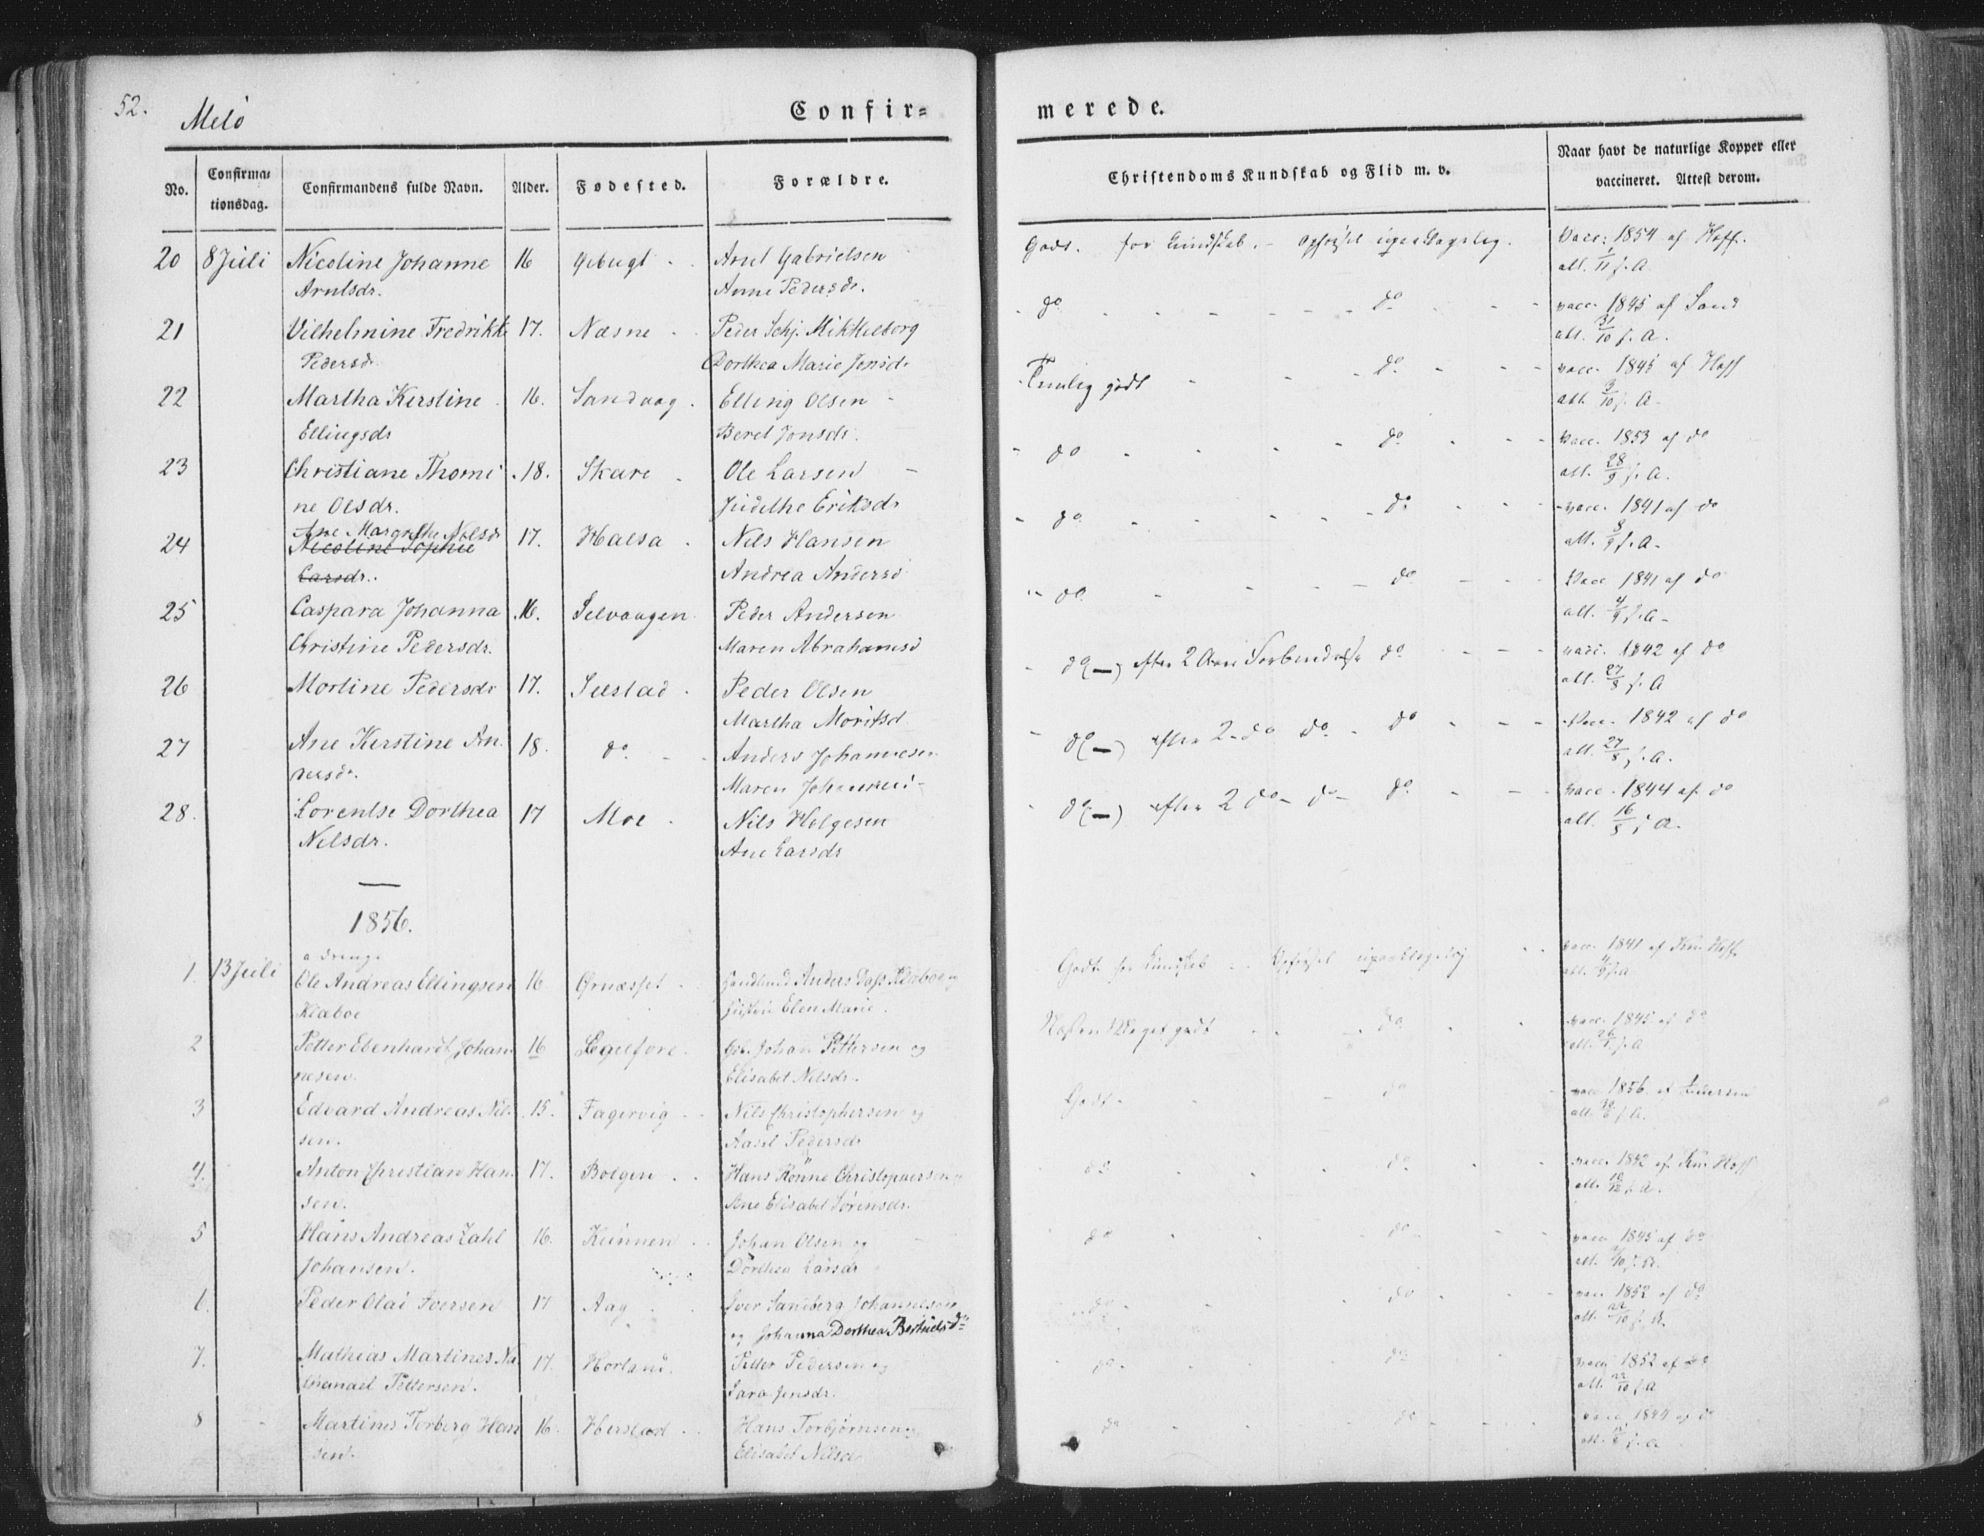 52.
Melö
Confirmerede.
No.
Confirmationsdag.
Confirmandens fulde Navn.
Alder.
Fødested.
Forældre.
Christendoms Kundskab og Flid m. v.
Naar havt de naturlige Kopper eller
vaccineret. Attest derom.
20 8 Juli Nicoline Johanne 16 Arnt Gabrielsen Godt. for Kundskab. - Opførsel upaaklagelig. Vacc: 1854 af Hoff.
Arntsdr. Anne Pedersdr. att. 1/11 s. A.
21 Vilhelmine Fredrikke 17. Næsne Peder Schj. Mikkelborg do do vacc. 1845 af Sand
Pedersdr. Dorthea Marie Jensdr att. 31/10 s. A.
22 Martha Kerstine 16. Sandvaag. Elling Olsen Temlig godt do vacc. 1845 af Hoff
Ellingsdr Beret Jonsdr. att. 9/10 s. A.
23 Christiane Thomi 18. Skare Ole Larsen do do vacc. 1853 af do
ne Olsdr. Judithe Eriksdr att. 28/9 s. A.
24 Ane Margrethe Nilsdr 17. Halsa Nils Hansen do do vacc. 1841 af do
Nicoline Sophie
Larsdr. Andrea Andersd att. 8/9 s. A.
25 Caspara Johanna 16. Selvaagen Peder Andersen do do Vacc 1841 af do
Christine Pedersdr. Maren Abrahamsd att. 4/9 s. A.
26 Mortine Pedersdr 17. Peder Olsen do (—) efter 2 do vacc. 1842 af do
Martha Moritsd att. 27/8 s. A
27 Ane Kerstine An 18. do Anders Johannesen do (—) efter 2 do do do Vacc. 1842 af do
dersdr. Maren att. 27/8 s. A.
28. Lorentse Dorthea 17 Moe Nils Helgesen do (—) efter 2 do do do vacc. 1844 af do
Nilsdr. Ane Larsdr att. 16/8 s. A.
1856.
a Drenge
1. 13 Juli Ole Andreas Ellingsen 16 Ørnæsset Anders Dass Klæboe og Godt for Kundskab - Opførsel upaaklagelig vacc. 1841 af Hoff
Klæboe Elen Marie. att. s. A
2 Petter Ebenhardt Johan 16 Johan Pettersen og Næsten Meget godt do vacc. 1845 af do
nesen. Elisabet Nilsdr. att. s. A
3 Edvard Andreas Nil 15. Fagervig Nils Christophersen og Godt do vacc. 1856 af Andersen
sen. Aasel Pedersdr att. s. A.
4. Anton Christian Han 17. Bolgen Hans Rønne Christophersen og do do vacc. 1842 af Hoff
sen. Ane Elisabet Sørensdr. att. 10/12 s. A.
5 Hans Andreas Zahl 16. Kunnen Johan Olsen og do do vacc. 1845 af do
Johansen. Dorthea Larsdr att. s. A.
6. Peder Olai Iversen 17 Aag Iver Sandberg do do vacc. 1852 af do
og Johanna Dorthea Bertheusdr att. 22/10 s. A.
7. Mathias Martines Na 17. Horland. Peter Pedersen og do do vacc. 1852 af do
thanael Pettersen. Sara Jensdr. att. 22/10 s. A
8 Martines Torberg Han 16. Herstad Hans Torbjørnsen og do do vacc. 1844 af do
sen. Elisabet Nilsd att. s. A